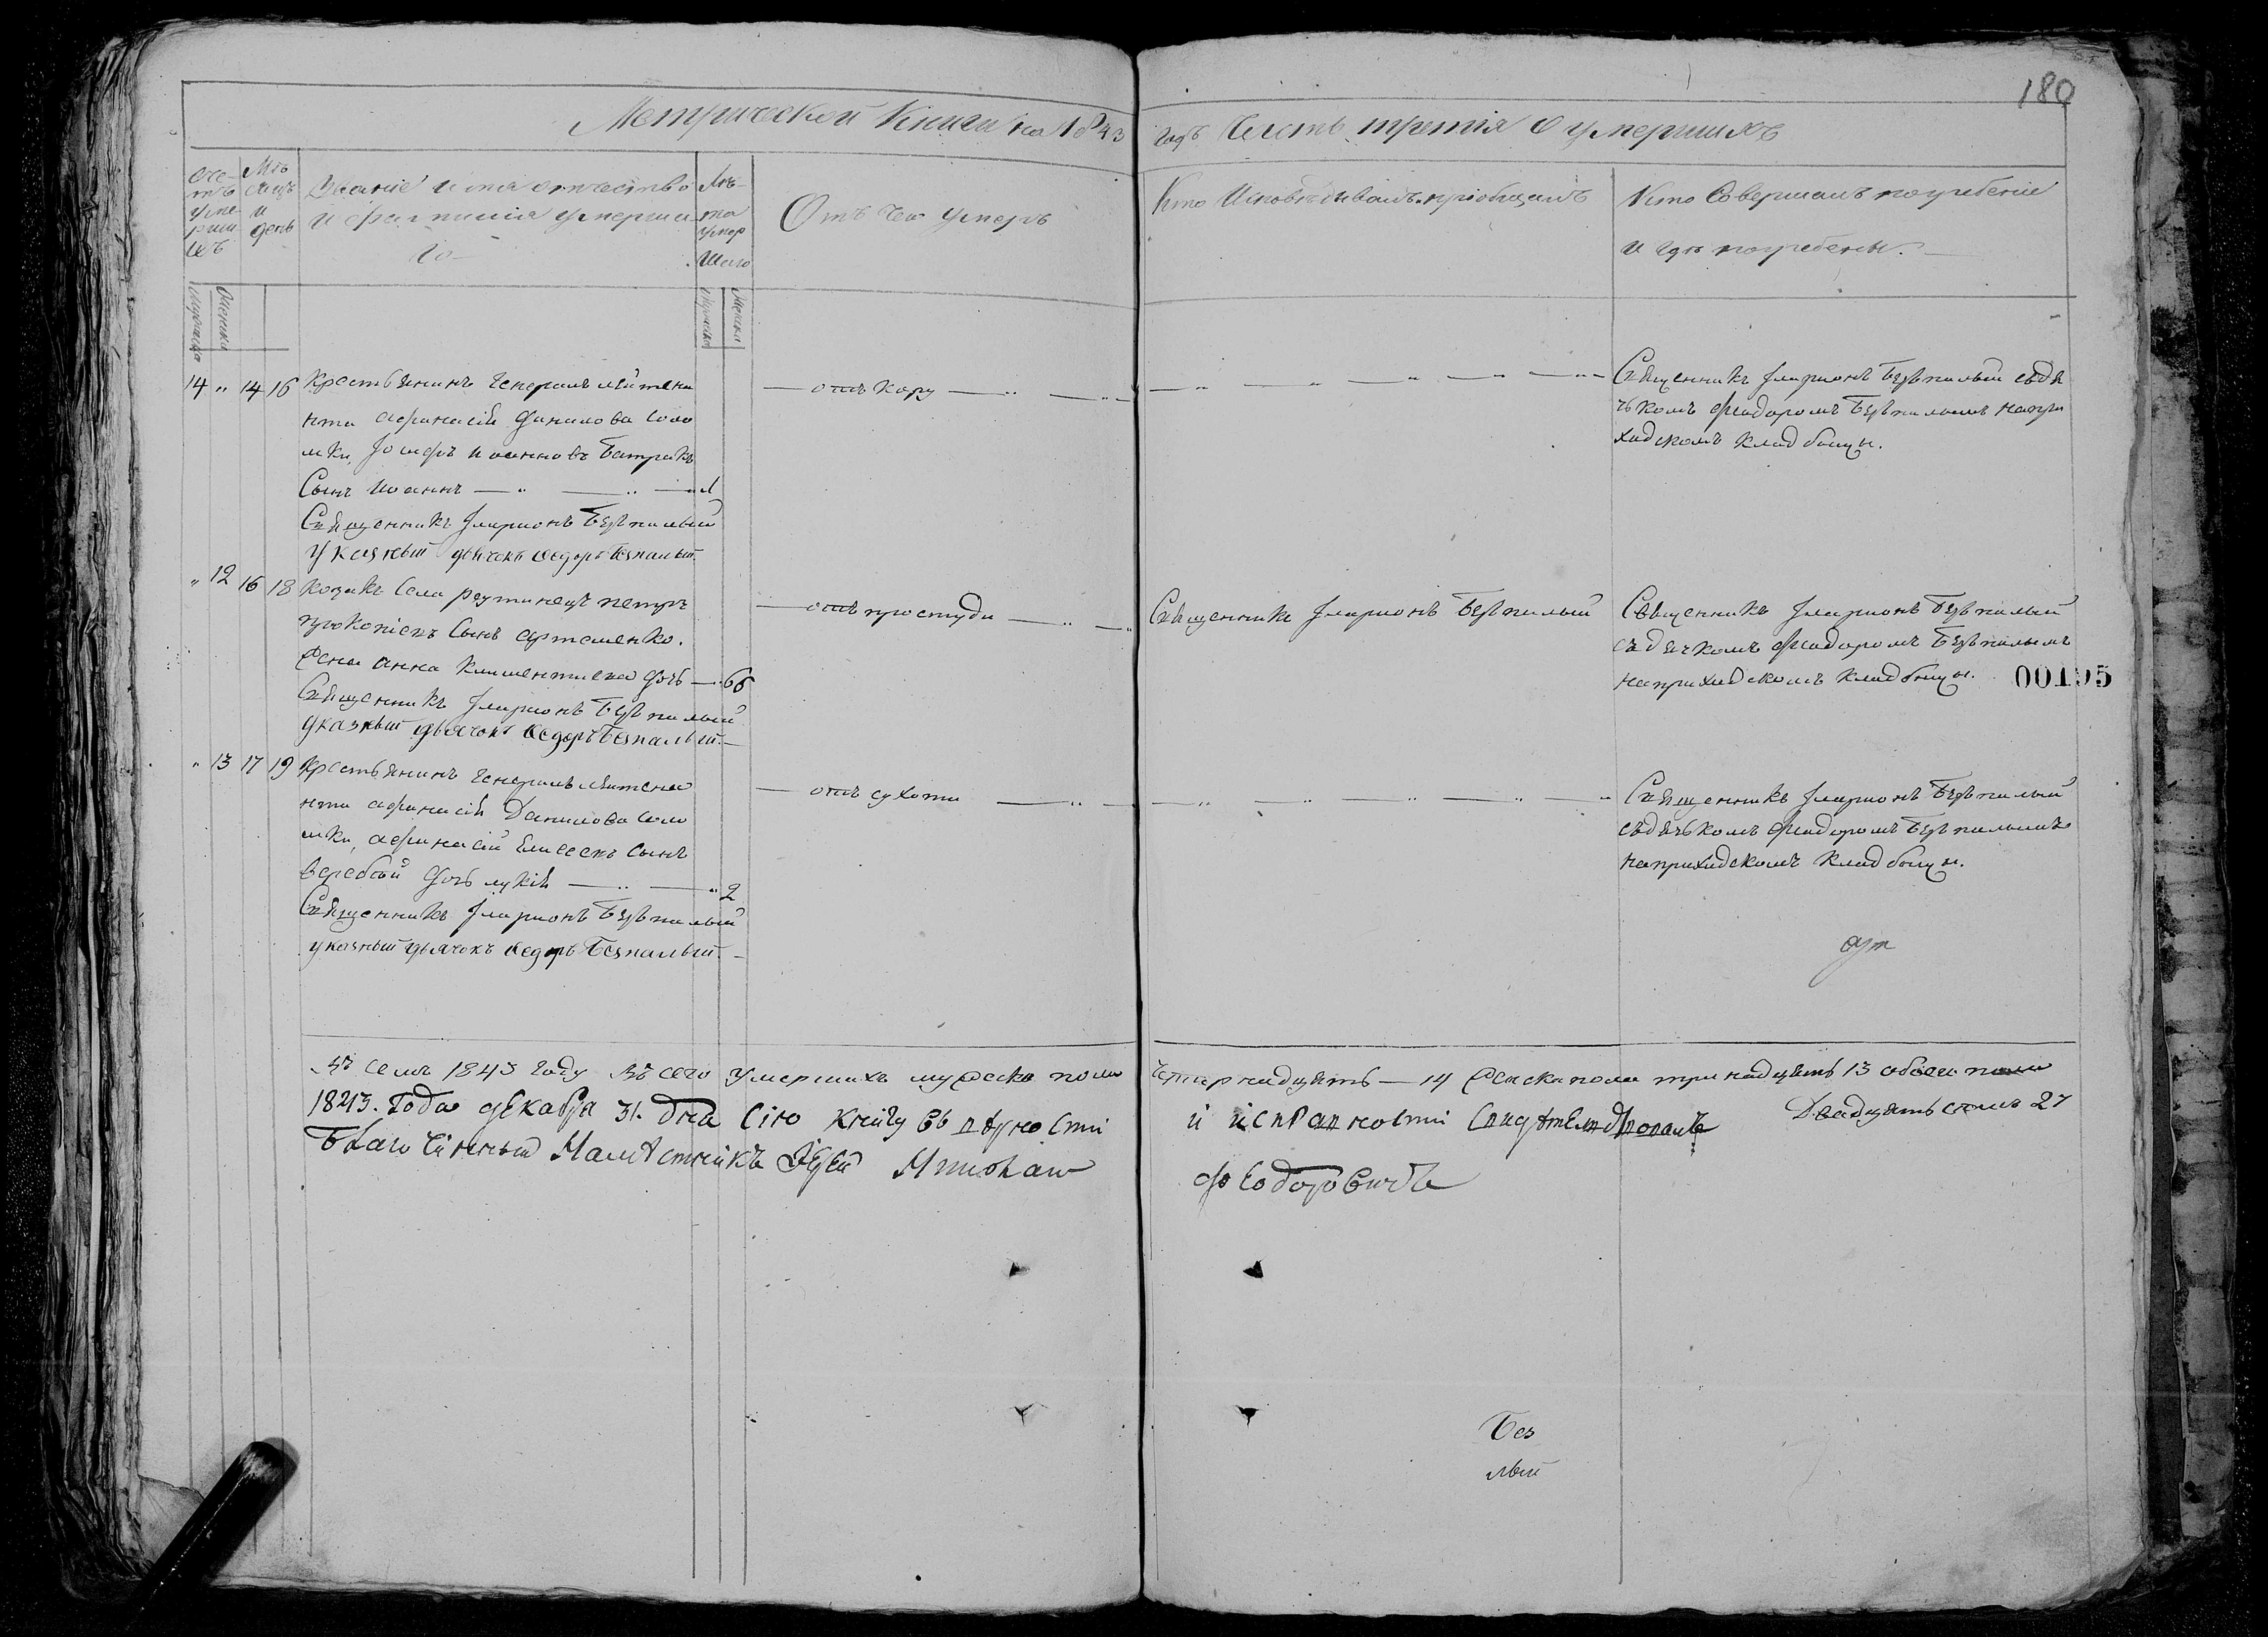 180
Метрической Книги на 1843 годъ Часть третія о умершихъ
Сче-
тъ
уме-
рши-
хъ
Мѣ
сяцъ
и
день
Званіе имя отчество
и фамилія умерша-
го
Лѣ-
та
умер
шаго
Отъ чего умеръ
Кто Исповѣдивалъ и пріобщалъ
Кто Совершалъ погребеніе
и гдѣ погребены.
Мужеска
Женска
Мужеска
Женска
14 " 14 16 Крестьянинъ Генералъ лейтена
нта Афанасія Данилова Соло
мки, Іосифъ Иоанновъ Батракъ
Сынъ Иоаннъ — " — " — " 1
Священникъ Іларионъ Безпалый
Указный дьячокъ Ѳедоръ Безпалый.
— отъ кору — " —
Священникъ Іларионъ Безпалый съ дя
чькомъ Феодоромъ Безпалымъ на при
ходскомъ кладбищи.
" 12 16 18 Козакъ Села Реутинецъ Петръ
Прокопіевъ Сынъ Артеменко.
Жена Анна Климентиева дочь — 66
Священникъ Іларионъ Безпалый
Указный дьячокъ Ѳедоръ Безпалый. —
— отъ простуди — " —
Священникъ Іларионъ Безпалый
Священникъ Іларионъ Безпалый
съ дячкомъ Феодоромъ Безпалымъ
на приходскомъ кладбищи.
00195
" 13 17 19 Крестьянинъ Генералъ лейтена
нта Афанасія Данилова Соло
мки, Афанасій Елисеевъ Сынъ
Веребей дочь Лукія — " — " 2
Священникъ Іларионъ Безпалый
указный дьячокъ Ѳедоръ Безпалый. —
— отъ сухоти — " —
Священникъ Іларионъ Безпалый
съ дячькомъ Феодоромъ Безпалымъ
на приходскомъ кладбищи.
Въ семъ 1843 году Въ сего умершихъ мужеска пола четирнадцять — 14 женска пола тринадцять 13 обоего пола
Двадцять семъ 27
1843. Года декабря 31. дня Сію книгу въ вѣрности и исправности Свидѣтелствовалъ
Благочинный Намѣстникъ Іерей Михаил
Феодоровичъ
Без
лый